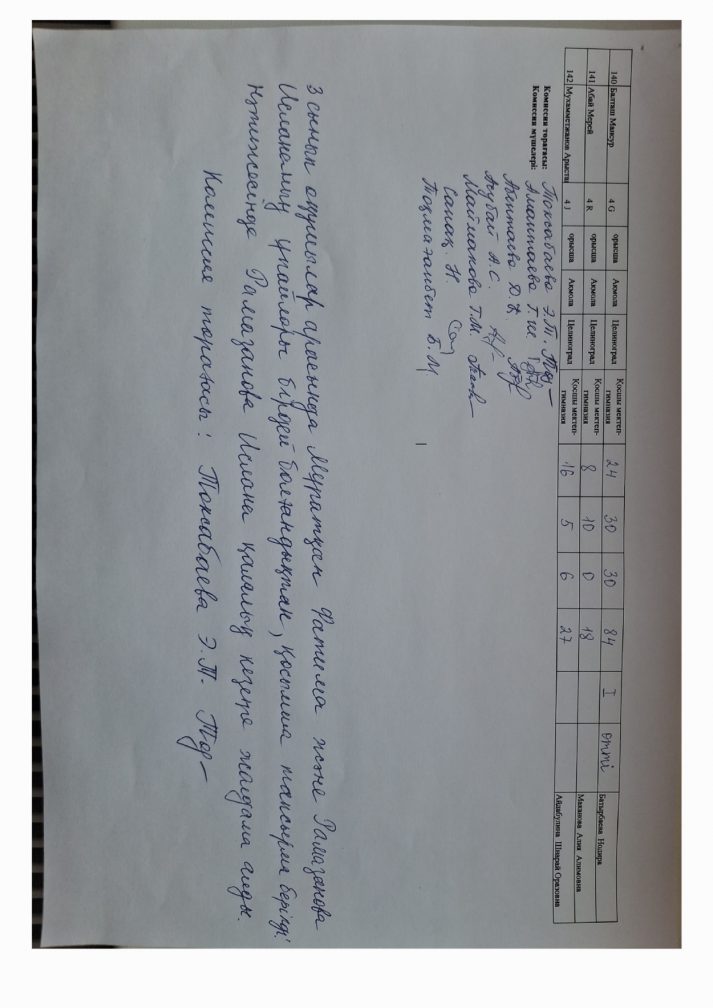 140 Балташ Мансур 4 G орысша Акмола Целиноград Қосшы мектеп-гимназия 24 30 30 84 I өтті Батырбаева Нодира
141 Абай Мерей 4 R орысша Акмола Целиноград Қосшы мектеп-гимназия 8 10 0 18 Маханова Алия Алимовна
142 Мухамметжанов Арыстан 4 J орысша Акмола Целиноград Қосшы мектеп-гимназия 16 5 6 27 Айдабулина Шнарай Оразовна
Комиссия төрағасы: Токсабаева Э.Т.
Комиссия мүшелері: Амантаева Т.Ш.
Ахубай А.С.
Майманова Т.М.
Санақ Н.
Тоқмағанбет Б.М
3 сынып оқушылар арасында Мұратқан Фатима және Рамазанова
Исланамың ұпайлары бірдей болғандықтан, қосымша тапсырма берілді.
Нәтижесінде Рамазанова Ислана қалалық кезеңге жолдама алды.
Комиссия төрағасы: Токсабаева Э.Т.